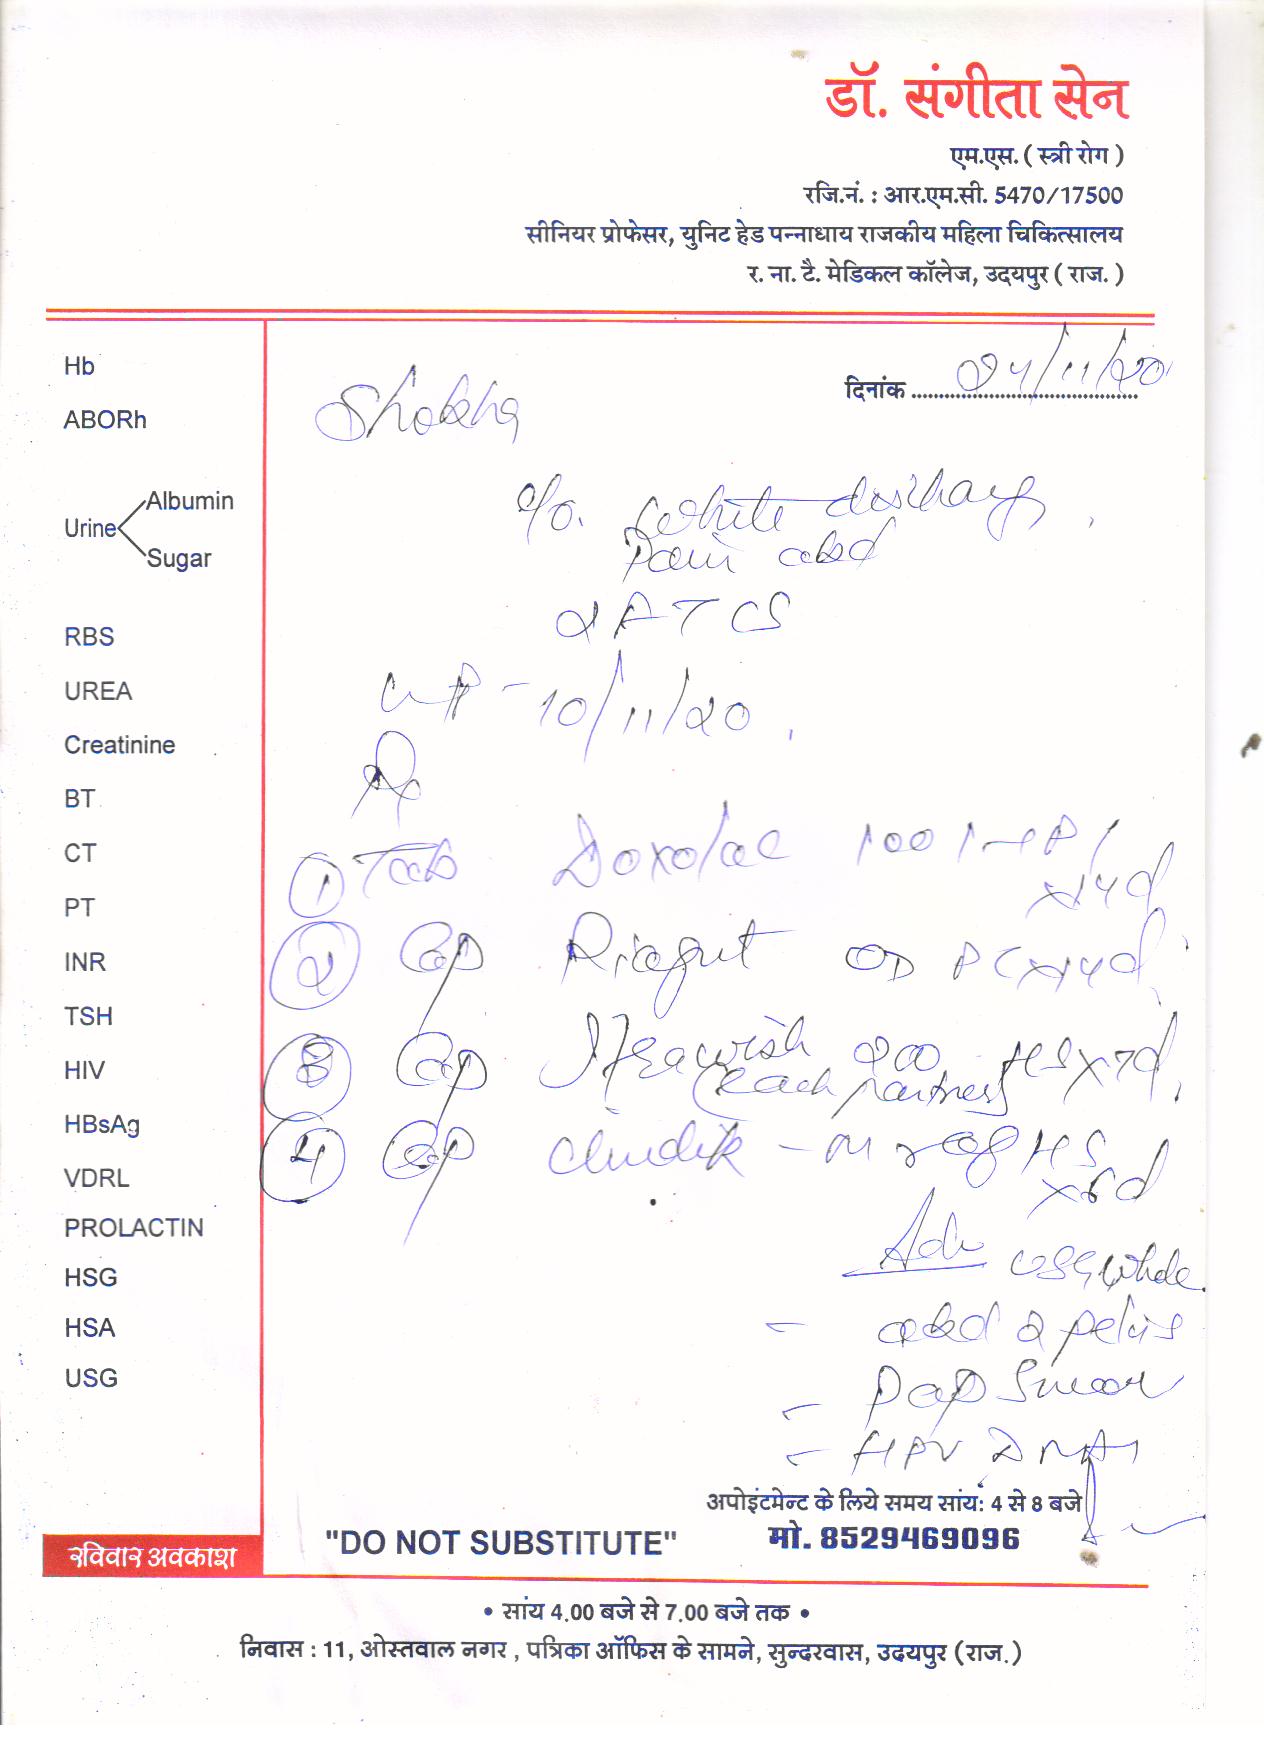 डॉ. संगीता सेन
एम.एस. ( स्त्री रोग )
रजि.नं. : आर.एम.सी. 5470/17500
सीनियर प्रोफेसर, युनिट हेड पन्नाधाय राजकीय महिला चिकित्सालय
र. ना. टै. मेडिकल कॉलेज, उदयपुर ( राज. )
दिनांक 24/11/20
Hb
ABORh
Urine Albumin
Sugar
RBS
UREA
Creatinine
BT
CT
PT
INR
TSH
HIV
HBsAg
VDRL
PROLACTIN
HSG
HSA
USG
c/o. white discharge,
Pain abd
2 FTCS
LMP - 10/11/20
Rx
① Tab 100 1-1 P/
x14d
② Cap OD PC x14d
③ Cap 200 HS x7d
(each partner)
④ Cap HS
x6d
Adv USG whole
- abd & pelvis
- Pap Smear
- HPV DNA
अपोइंटमेन्ट के लिये समय सांय: 4 से 8 बजे
"DO NOT SUBSTITUTE" मो. 8529469096
रविवार अवकाश
• सांय 4.00 बजे से 7.00 बजे तक •
निवास : 11, ओस्तवाल नगर , पत्रिका ऑफिस के सामने, सुन्दरवास, उदयपुर (राज.)